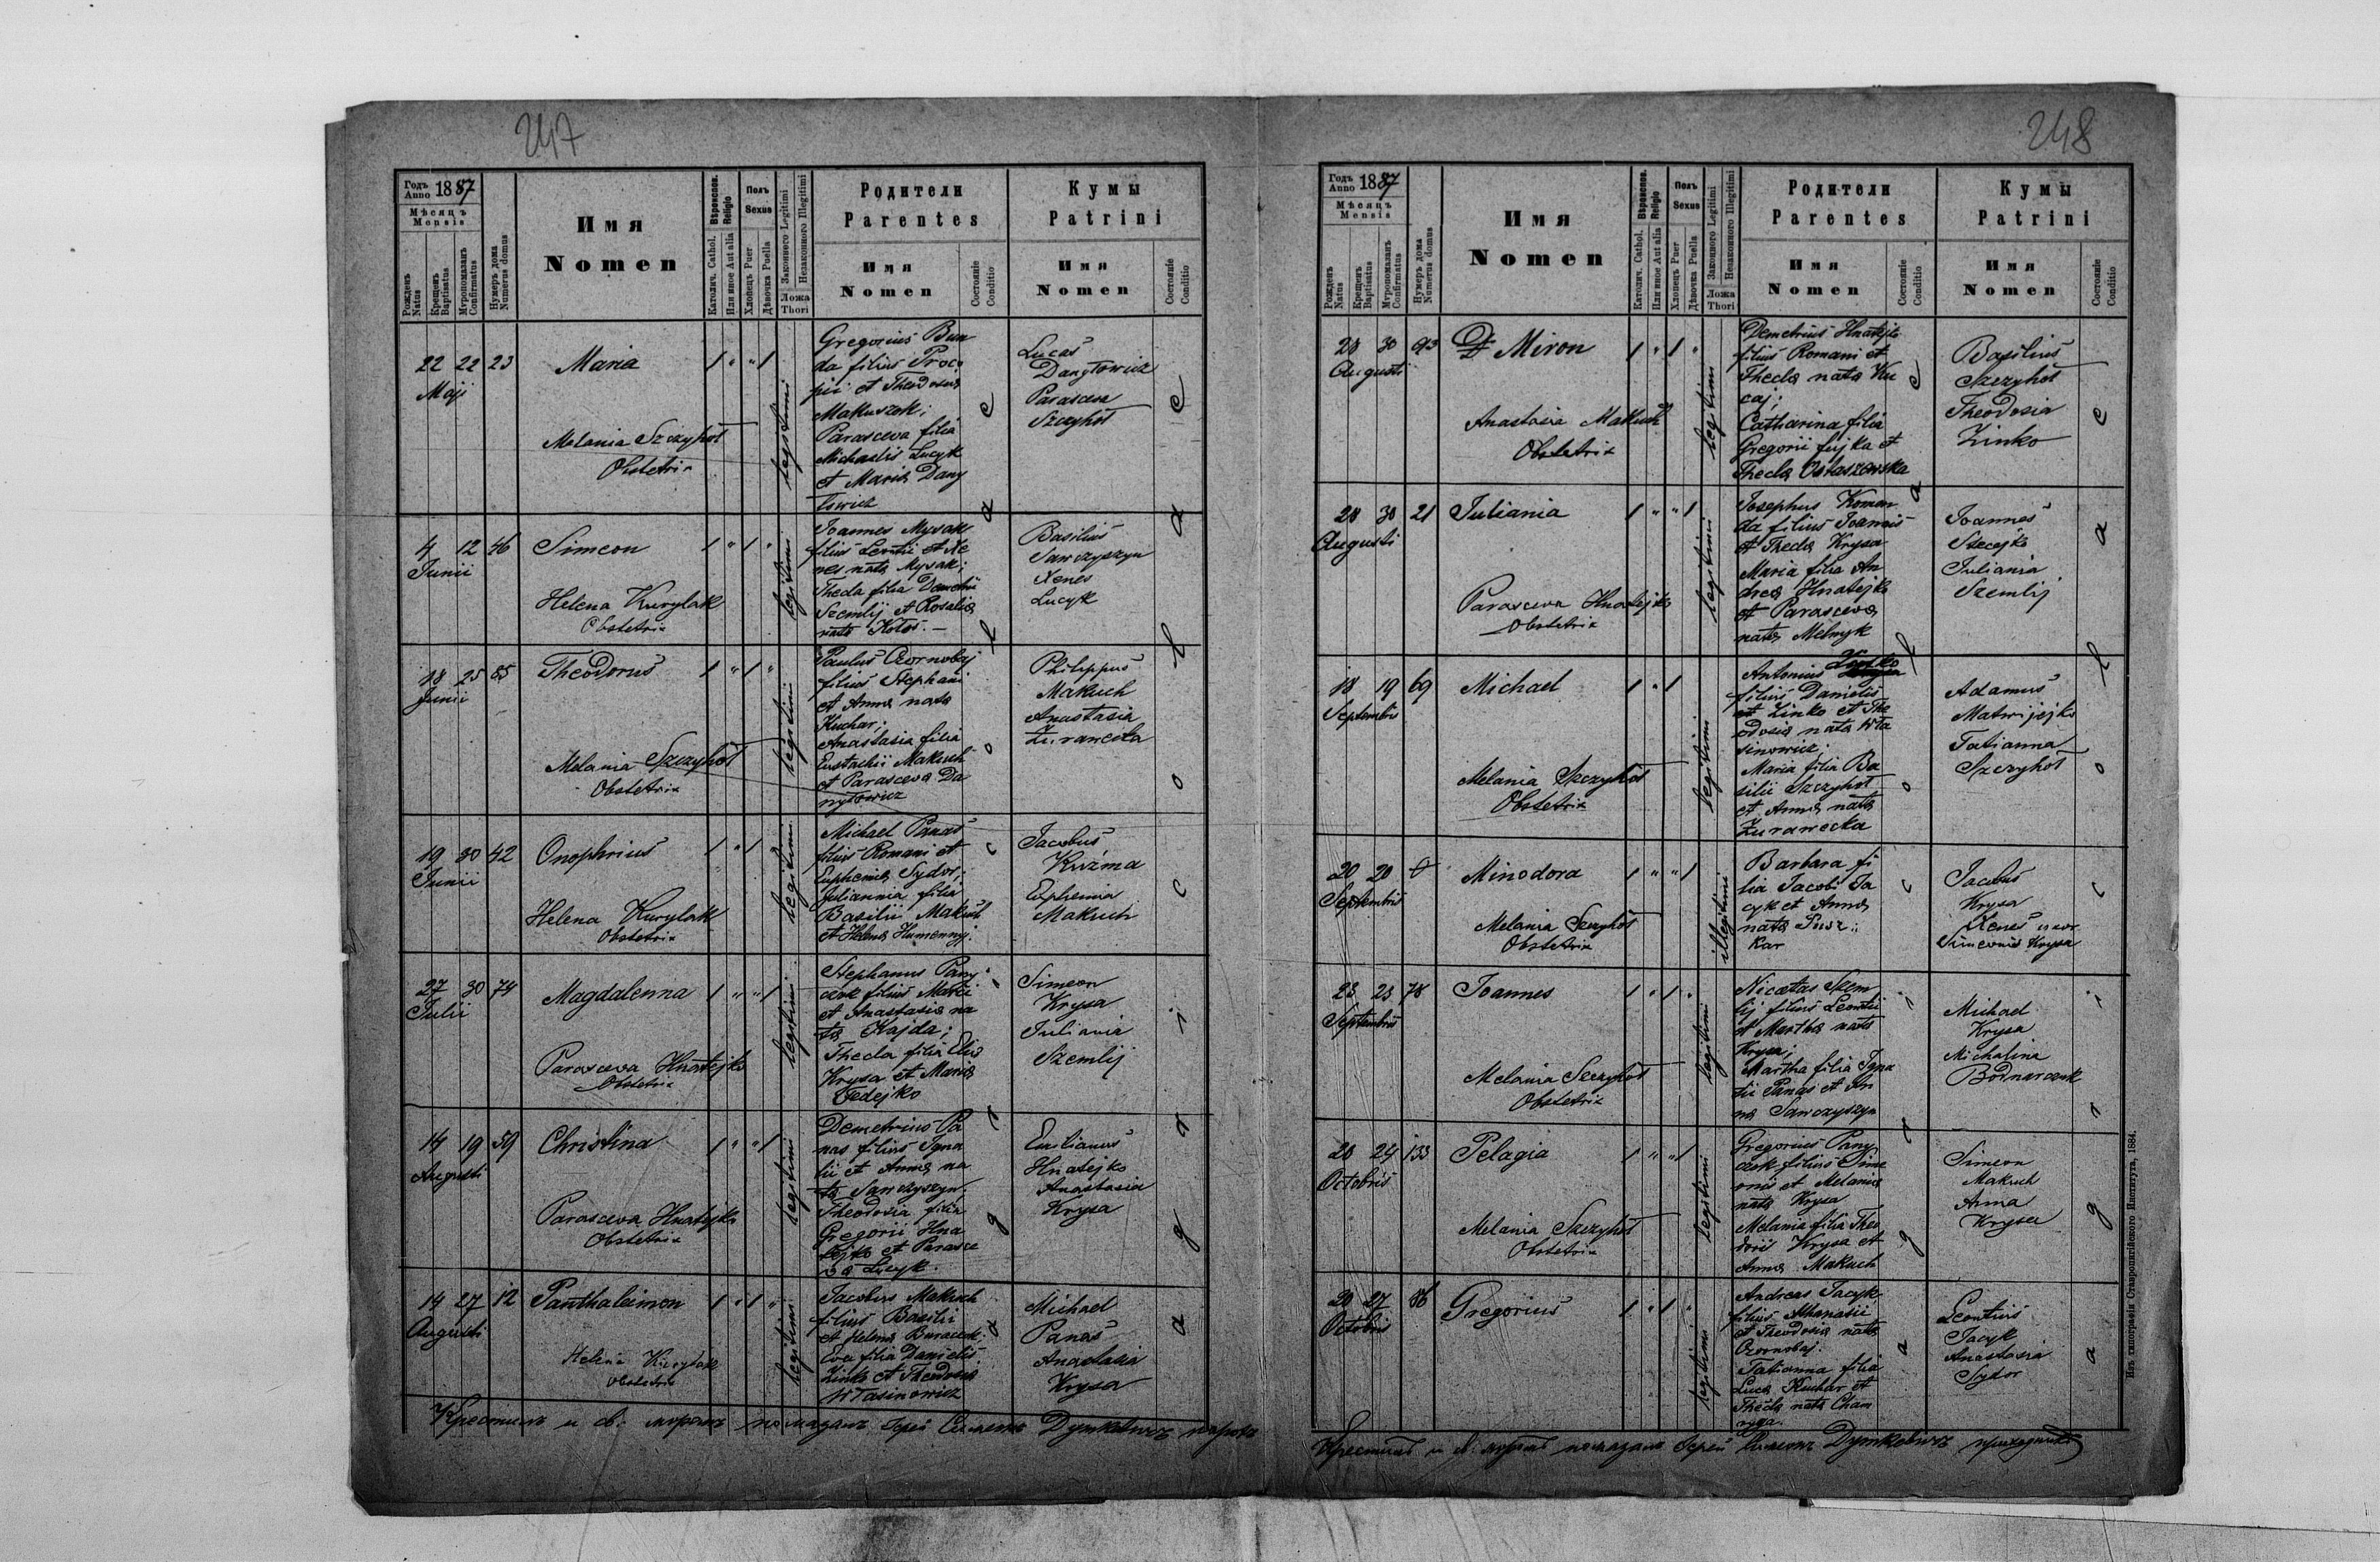 247
Годъ
Anno 1887
Мѣсяцъ
Mensis
Рожденъ
Natus
Крещенъ
Baptisatus
Мѵропомазанъ
Confirmatus
Нумеръ дома
Numerus domus
Имя
Nomen
Вѣроиспов.
Religio
Католич. Cathol.
Или иное Aut alia
Полъ
Sexus
Хлопецъ Puer
Дѣвочка Puella
Законного Legitimi
Незаконного Illegitimi
Ложа
Thori
Родители
Parentes
Имя
Nomen
Состояніе
Conditio
Кумы
Patrini
Имя
Nomen
Состояніе
Conditio
22 22 23
Maji
Maria
Melania Szczyhoł
Obstetrix
legitimi
Gregorius Bun
da filius Proco
pii et Theodosia
Makuszok;
Parasceva filia
Michaelis Lucyk
et Maria Dany
łowicz
Lucas
Danyłowicz
Parasceva
Szczyhoł
4 12 46
Junii
Simeon
Helena Kurylak
Obstetrix
legitimi
Joannes Mysak
filius Leontii et Xe
nes nata Mysak;
Thecla filia Demetrii
Szemlij et Rosalia
nata Kotos.
Basilius
Sawczyszyn
Xenes
Lucyk
18 25 85
Junii
Theodorus
Melania Szczyhoł
Obstetrix
legitimi
Paulus Czornobaj
filius Stephani
et Anna nata
Kuchar;
Anastasia filia
Eustachii Makuch
et Parasceva Da
nyłowicz
Philippus
Makuch
Anastasia
Żurawecka
19 30 42
Junii
Onophrius
Helena Kurylak
Obstetrix
legitimi
Michael Panas
filius Romani et
Euphemia Sydor;
Julianna filia
Basilii Makuch
et Helena Humennyj.
Jacobus
Kuźma
Euphemia
Makuch
27 30 74
Julii
Magdalenna
Parasceva Hnatejko
Obstetrix
legitimi
Stephanus Pany
czek filius Matei
et Anastasia na
ta Kajda;
Thecla filia Elia
Krysa et Maria
Fedejko
Simeon
Krysa
Juliania
Szemlij
14 19 59
Augusti
Christina
Parasceva Hnatejko
Obstetrix
legitimi
Demetrius Pa
nas filius Igna
tii et Anna na
ta Sawczyszyn;
Theodosia filia
Gregorii Hna
tejko et Parasce
va Lucyk.
Emilianus
Hnatejko
Anastasia
Krysa
14 27 12
Augusti
Panthaleimon
Helena Kurylak
Obstetrix
legitimi
Jacobus Makuch
filius Basilii
et Helena Buraczek;
Eva filia Danielis
Zinko et Theodosia
Własinowicz
Michael
Panas
Anastasia
Krysa
agricola
agricola
Крестилъ и св: мѵромъ помазалъ Іерей Симеонъ Дуткевичъ парохъ
248
Годъ
Anno 1887
Мѣсяцъ
Mensis
Рожденъ
Natus
Крещенъ
Baptisatus
Мѵропомазанъ
Confirmatus
Нумеръ дома
Numerus domus
Имя
Nomen
Вѣроиспов.
Religio
Католич. Cathol.
Или иное Aut alia
Полъ
Sexus
Хлопецъ Puer
Дѣвочка Puella
Законного Legitimi
Незаконного Illegitimi
Ложа
Thori
Родители
Parentes
Имя
Nomen
Состояніе
Conditio
Кумы
Patrini
Имя
Nomen
Состояніе
Conditio
28 30 93
Augusti
Miron
Anastasia Makuch
Obstetrix
legitimi
Demetrius Hnatejko
filius Romani et
Thecla nata Ku
caj;
Catharina filia
Gregorii fujka et
Thecla Ostaszewska
Basilius
Szczyhoł
Theodosia
Zinko
28 30 21
Augusti
Juliania
Parasceva Hnatejko
Obstetrix
legitimi
Josephus Koman
da filius Joannis
et Thecla Krysa
Maria filia An
drea Hnatejko
et Parasceva
nata Melnyk
Joannes
Stecejko
Juliania
Szemlij
18 19 69
Septembris
Michael
Melania Szczyhoł
Obstetrix
legitimi
Antonius
filius Danielis
et Zinko et The
odosia nata Wła
sinowicz;
Maria filia Ba
silii Szczyhoł
et Anna nata
Żurawecka
Adamus
Matwijejko
Tatianna
Szczyhoł
20 20
Septembris
Minodora
Melania Szczyhoł
Obstetrix
illegitimi
Barbara fi
lia Jacobi Ja
cyk et Anna
nata
kar
Jacobus
Krysa
Xenes uxor
Simeonis Krysa
23 23 78
Septembris
Joannes
Melania Szczyhoł
Obstetrix
legitimi
Nicetas Szem
lij filius Leontii
et Martha nata
Krysa;
Martha filia Igna
tii Panas et An
na Sawczyszyn
Michael
Krysa
Michalina
Bodnarczuk
20 24 133
Octobris
Pelagia
Melania Szczyhoł
Obstetrix
legitimi
Gregorius Pany
czek filius Sime
onis et Melania
nata Krysa
Melania filia Theo
dorii Krysa et
Anna Makuch
Simeon
Makuch
Anna
Krysa
20 27 86
Octobris
Gregorius
legitimi
Andreas Jacyk
filius Athanasii
et Theodosia nata
Czornobaj.
Tatianna filia
Luca Kuchar et
Thecla nata Cham
ryga.
Leontius
Jacyk
Anastasia
Sydor
agricola
agricola
Крестилъ и св. мѵромъ помазалъ Іерей Симеонъ Дуткевичъ приходникъ
Изъ типографіи Ставропигійского Института, 1884.